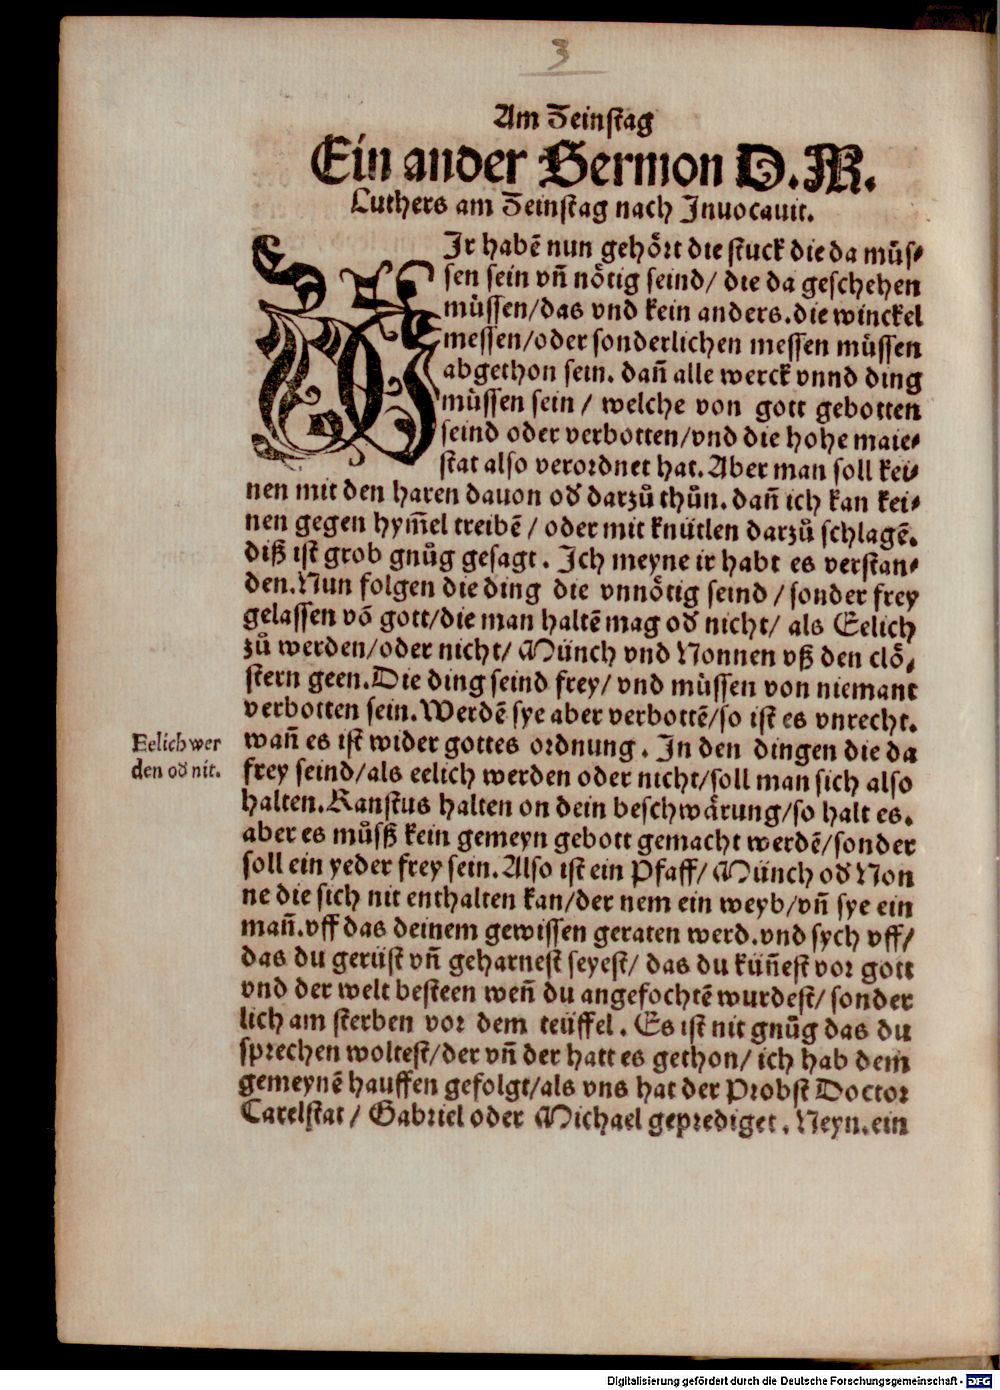 3
Am Zeinstag
Ein ander Sermon D. M.
Luthers am Zeinstag nach Inuocauit.
WIr habẽ nun gehoͤrt die stuck die da muͤs⸗
sen sein vñ noͤtig seind/ die da geschehen
muͤssen/das vnd kein anders.die winckel
messen/oder sonderlichen messen muͤssen
abgethon sein. dañ alle werck vnnd ding
muͤssen sein / welche von gott gebotten
seind oder verbotten/vnd die hohe maie⸗
stat also verordnet hat. Aber man soll kei⸗
nen mit den haren dauon oď darzuͦ thuͦn. dañ ich kan kei⸗
nen gegen hym̃el treibẽ / oder mit knütlen darzuͦ schlagẽ.
diß ist grob gnuͦg gesagt . Ich meyne ir habt es verstan⸗
den.Nun folgen die ding die vnnoͤtig seind / sonder frey
gelassen võ gott/die man haltẽ mag oď nicht/ als Eelich
zuͦ werden/oder nicht/ Münch vnd Nonnen vß den cloͤ⸗
stern geen.Die ding seind frey/ vnd muͤssen von niemant
verbotten sein.Werdẽ sye aber verbottẽ/so ist es vnrecht.
wañ es ist wider gottes ordnung . In den dingen die da
frey seind/als eelich werden oder nicht/soll man sich also
halten.Kanstus halten on dein beschwaͤrung/so halt es.
aber es muͦsß kein gemeyn gebott gemacht werdẽ/sonder
soll ein yeder frey sein.Also ist ein Pfaff/ Münch oď Non
ne die sich nit enthalten kan/der nem ein weyb/vñ sye ein
mañ.vff das deinem gewissen geraten werd.vnd sych vff/
das du gerüst vñ geharnest seyest/ das du küñest vor gott
vnd der welt besteen weñ du angefochtẽ wurdest/ sonder
lich am sterben vor dem teüffel . Es ist nit gnuͦg das du
sprechen woltest/der vñ der hatt es gethon/ ich hab dem
gemeynẽ hauffen gefolgt/als vns hat der Probst Doctor
Carelstat / Gabriel oder Michael geprediget . Neyn.ein
Eelich wer
den oď nit.
Digitalisierung gefördert durch die Deutsche Forschungsgemeinschaft - DFG